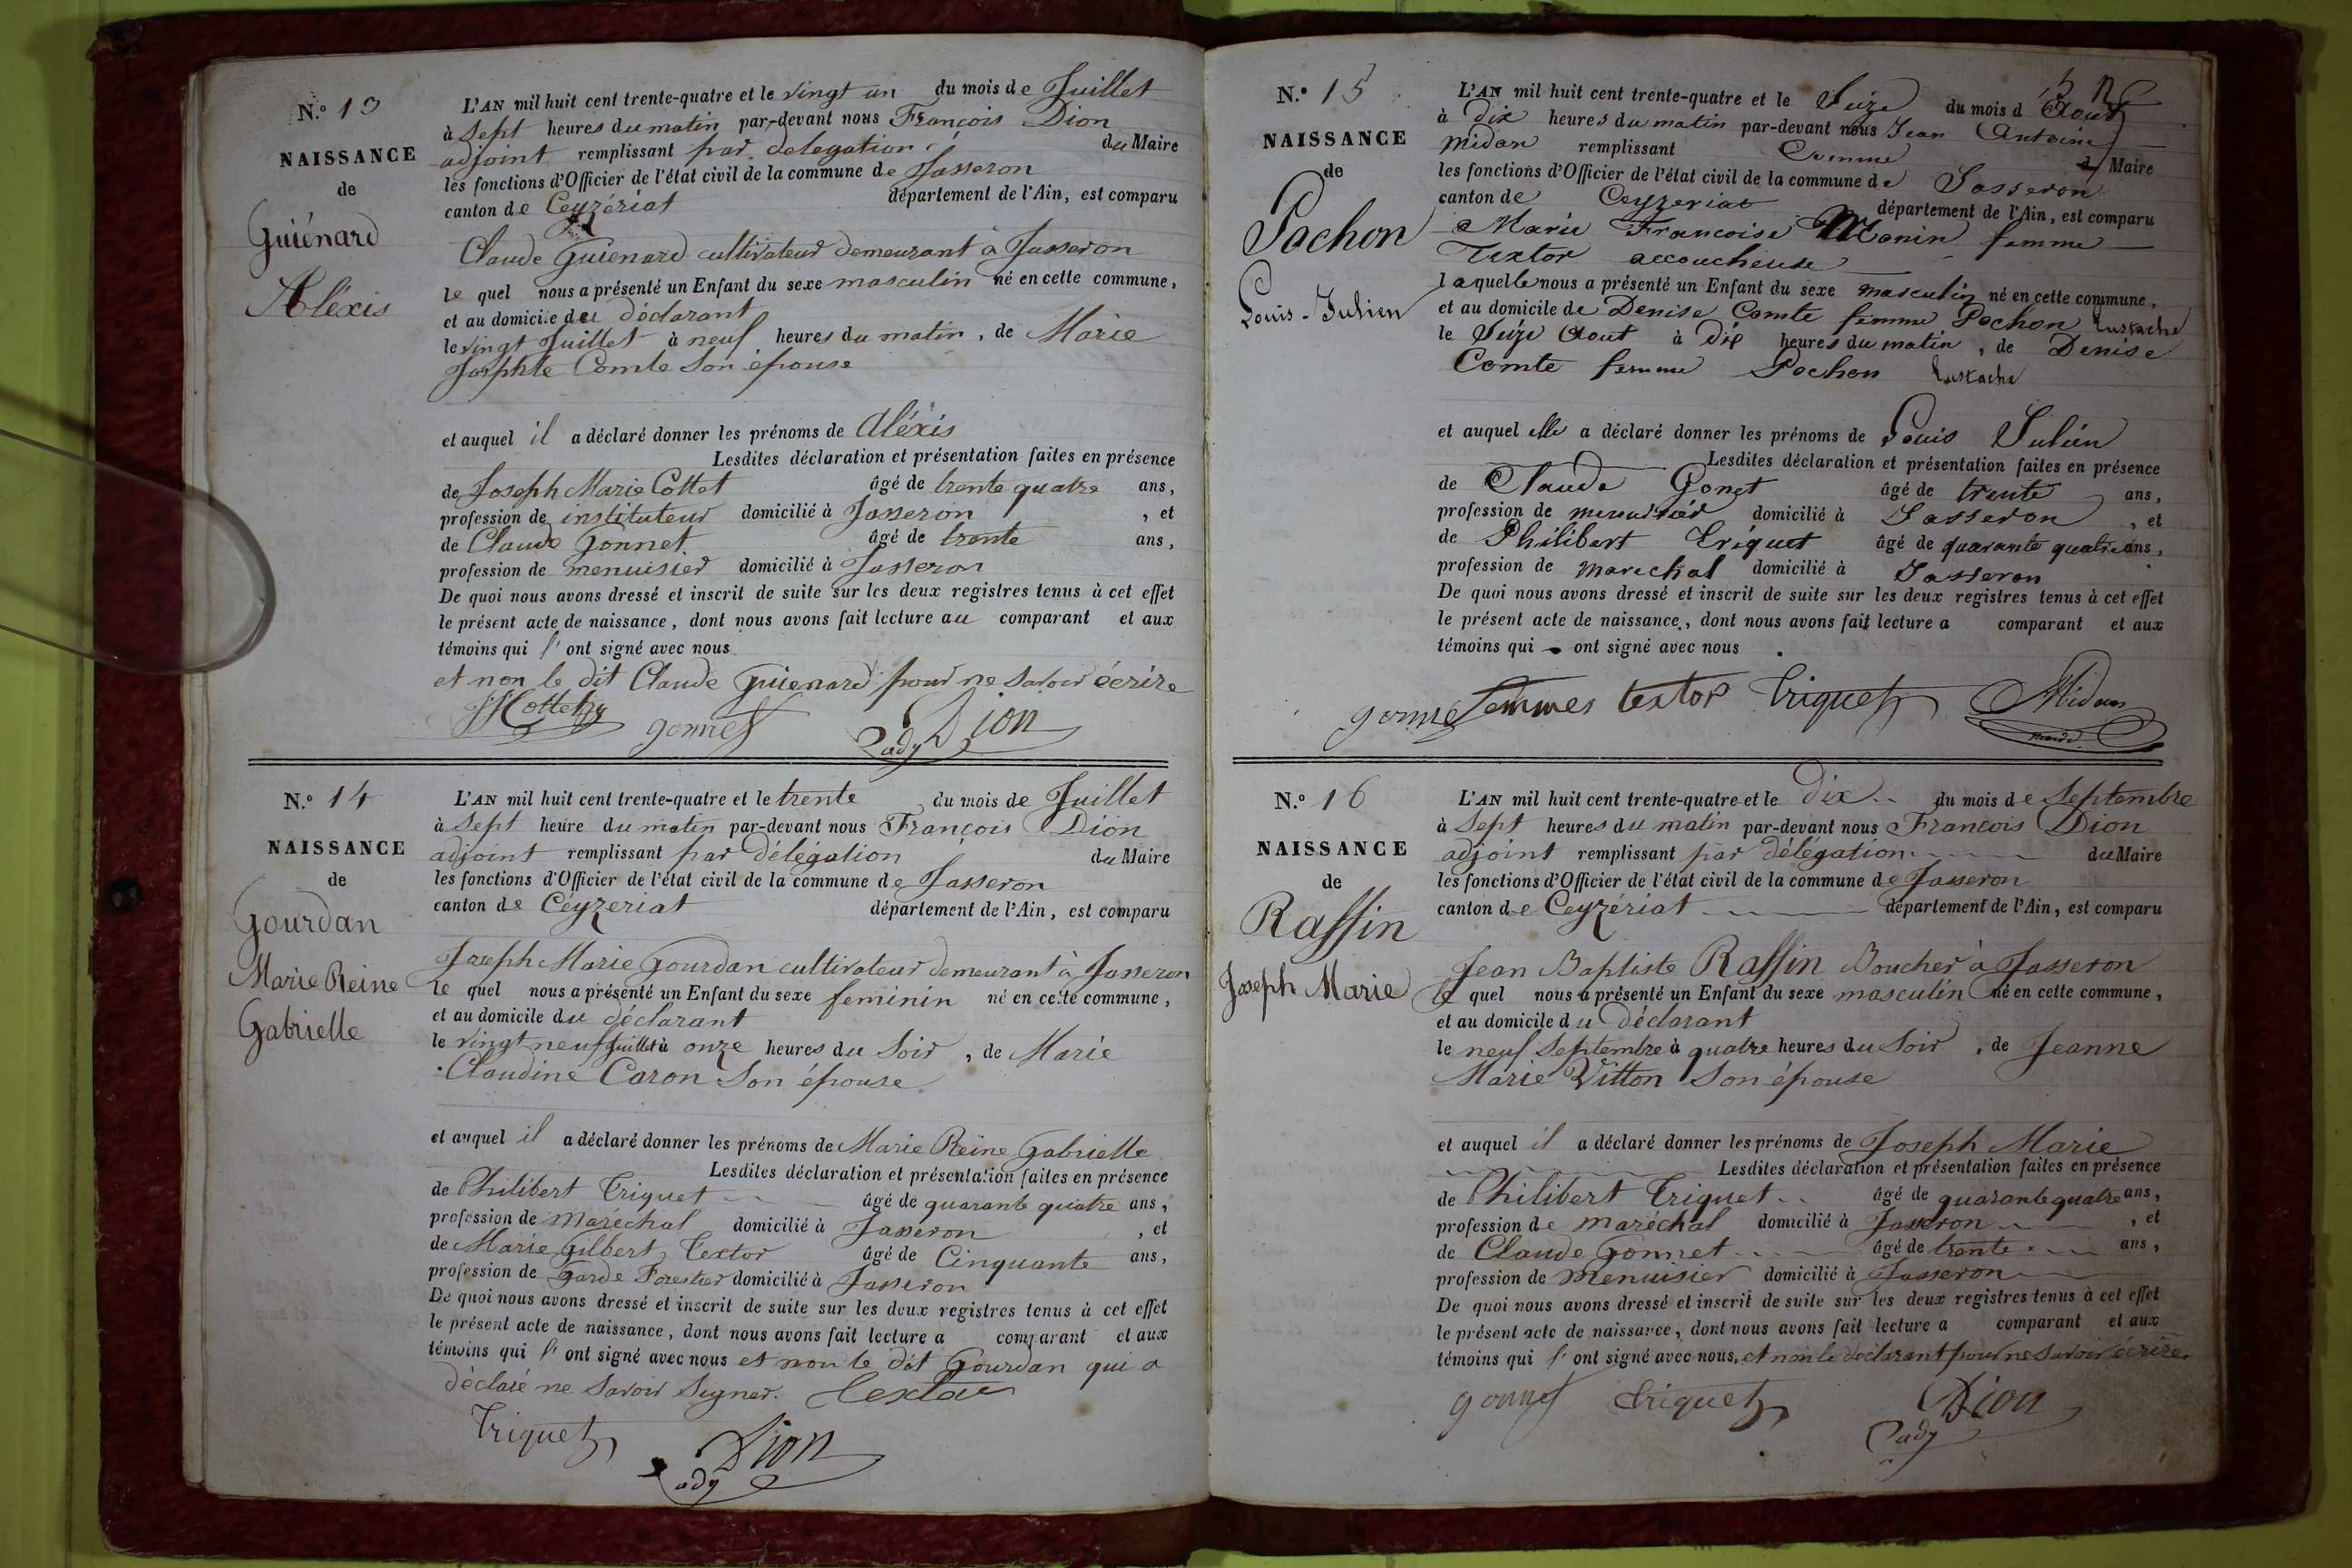 N.° 13
NAISSANCE
de
Guiénard
Aléxis
L'AN mil huit cent trente-quatre et le vingt un du mois de Juillet
à Sept heures du matin par-devant nous François Dion
adjoint remplissant par délégation du Maire
les fonctions d'Officier de l'état civil de la commune de Jasseron
canton de Ceyzériat département de l'Ain, est comparu
Claude Guienard cultivateur demeurant à Jasseron
le quel nous a présenté un Enfant du sexe masculin né en cette commune,
et au domicile du déclarant
le vingt Juillet à neuf heures du matin, de Marie
Josephte Comte son épouse
et auquel il a déclaré donner les prénoms de Aléxis
Lesdites déclaration et présentation faites en présence
de Joseph Marie Cottet âgé de trente quatre ans,
profession de instituteur domicilié à Jasseron, et
de Claude Gonnet âgé de trente ans,
profession de menuisier domicilié à Jasseron
De quoi nous avons dressé et inscrit de suite sur les deux registres tenus à cet effet
le présent acte de naissance, dont nous avons fait lecture au comparant et aux
témoins qui l' ont signé avec nous
et non le dit Claude Guienard pour ne savoir écrire
Cottet gonnet Dion
adj
N.° 14
NAISSANCE
de
Gourdan
Marie Reine
Gabrielle
L'AN mil huit cent trente-quatre et le trente du mois de Juillet
à Sept heure du matin par-devant nous François Dion
adjoint remplissant par délégation du Maire
les fonctions d'Officier de l'état civil de la commune de Jasseron
canton de Céyzeriat département de l'Ain, est comparu
Joseph Marie Gourdan cultivateur demeurant à Jasseron
le quel nous a présenté un Enfant du sexe feminin né en cette commune,
et au domicile du déclarant
le vingt neuf Juillet à onze heures du Soir, de Marie
Claudine Caron Son épouse
et auquel il a déclaré donner les prénoms de Marie Reine Gabrielle
Lesdites déclaration et présentation faites en présence
de Philibert Triquet âgé de quarante quatre ans,
profession de maréchal domicilié à Jasseron, et
de Marie Gilbert Textor âgé de Cinquante ans,
profession de Garde Forestier domicilié à Jasseron
De quoi nous avons dressé et inscrit de suite sur les deux registres tenus à cet effet
le présent acte de naissance, dont nous avons fait lecture a comparant et aux
témoins qui l' ont signé avec nous et non le dit Gourdan qui a
déclaré ne savoir signer. Textor
Triquet Dion
adj
N.° 15
NAISSANCE
de
Pochon
Louis-Julien
L'AN mil huit cent trente-quatre et le Seize du mois d'Aout
à dix heures du matin par-devant nous Jean Antoine
Midan remplissant Comme Maire
les fonctions d'Officier de l'état civil de la commune de Jasseron
canton de Ceyzeriat département de l'Ain, est comparu
Marie Francoise Monin femme
Textor accoucheuse
laquelle nous a présenté un Enfant du sexe masculin né en cette commune,
et au domicile de Denise Comte femme Pochon Eustache
le Seize Aout à dix heures du matin, de Denise
Comte femme Pochon Eustache
et auquel elle a déclaré donner les prénoms de Louis Julien
Lesdites déclaration et présentation faites en présence
de Claude Gonet âgé de trente ans,
profession de menuisier domicilié à Jasseron, et
de Philibert Triquet âgé de quarante quatre ans,
profession de marechal domicilié à Jasseron
De quoi nous avons dressé et inscrit de suite sur les deux registres tenus à cet effet
le présent acte de naissance, dont nous avons fait lecture a comparant et aux
témoins qui ont signé avec nous.
gonnet femmes textor Triquet Midan
maire
N.° 16
NAISSANCE
de
Raffin
Joseph Marie
L'AN mil huit cent trente-quatre et le Dix du mois de Septembre
à Sept heures du matin par-devant nous Francois Dion
adjoint remplissant par délégation du Maire
les fonctions d'Officier de l'état civil de la commune de Jasseron
canton de Ceyzériat département de l'Ain, est comparu
Jean Baptiste Raffin Boucher à Jasseron
le quel nous a présenté un Enfant du sexe masculin né en cette commune,
et au domicile du Déclarant
le neuf Septembre à quatre heures du Soir, de Jeanne
Marie Vitton Son épouse
et auquel il a déclaré donner les prénoms de Joseph Marie
Lesdites déclaration et présentation faites en présence
de Philibert Triquet âgé de quarante quatre ans,
profession de maréchal domicilié à Jasseron, et
de Claude Gonnet âgé de trente ans,
profession de menuisier domicilié à Jasseron
De quoi nous avons dressé et inscrit de suite sur les deux registres tenus à cet effet
le présent acte de naissance, dont nous avons fait lecture a comparant et aux
témoins qui l' ont signé avec nous, et non le déclarant pour ne savoir écrire.
gonnet Triquet Dion
adj